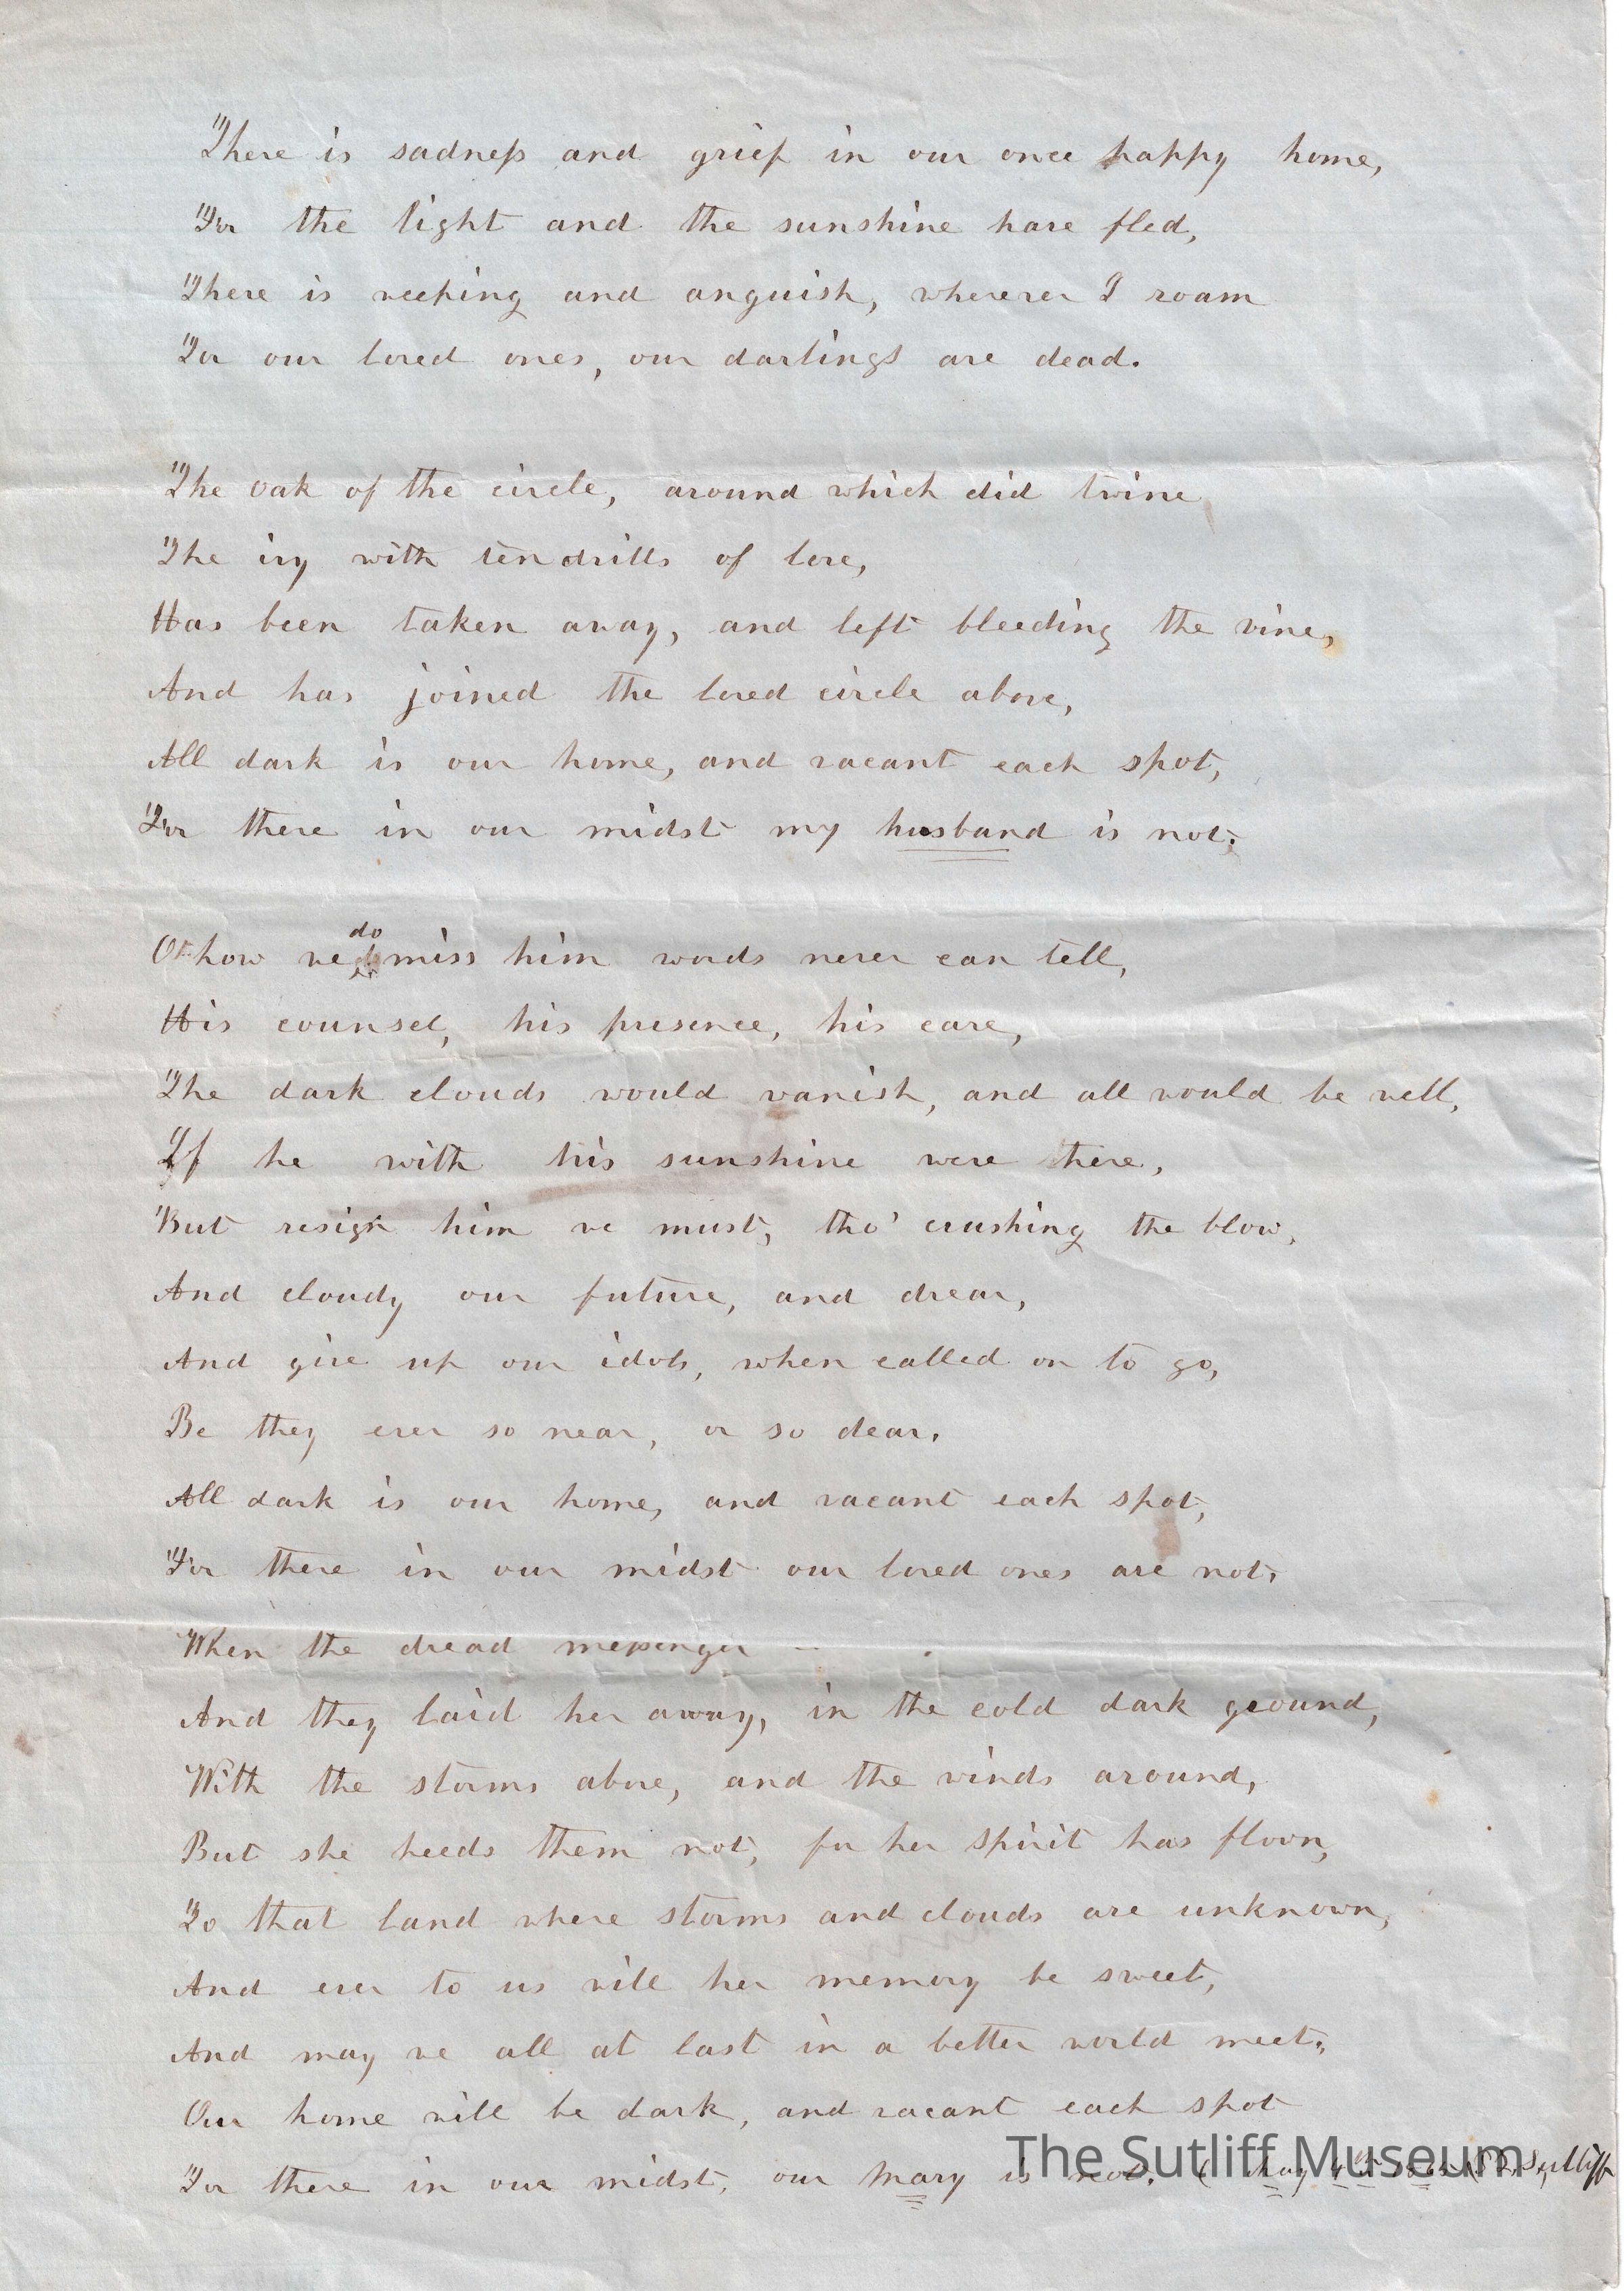 There is sadness and grief in our once happy home,
For the light and the sunshine have fled,
There is weeping and anguish, wherever I roam
For our loved ones, our darlings are dead.
The oak of the circle, around which did twine
The ivy with tendrills of love,
Has been taken away, and left bleeding the vine,
And has joined the loved circle above,
All dark is our home, and vacant each spot,
For there in our midst my husband is not.
Oh how we do miss him words never can tell,
His counsel, his presence, his care,
The dark clouds would vanish, and all would be well,
If he with his sunshine were there,
But resign him we must, tho' crushing the blow,
And cloudy our future, and drear,
And give up our idols, when called on to go,
Be they ever so near, or so dear.
All dark is our home, and vacant each spot,
For there in our midst our loved ones are not.
When the dread messenger
And they laid her away, in the cold dark ground,
With the storms above, and the winds around,
But she heeds them not, for her spirit has flown,
To that land where storms and clouds are unknown,
And ever to us will her memory be sweet,
And may we all at last in a better world meet.
Our home will be dark, and vacant each spot
For there in our midst, our Mary is not. May 4th Sutliff
The Sutliff Museum